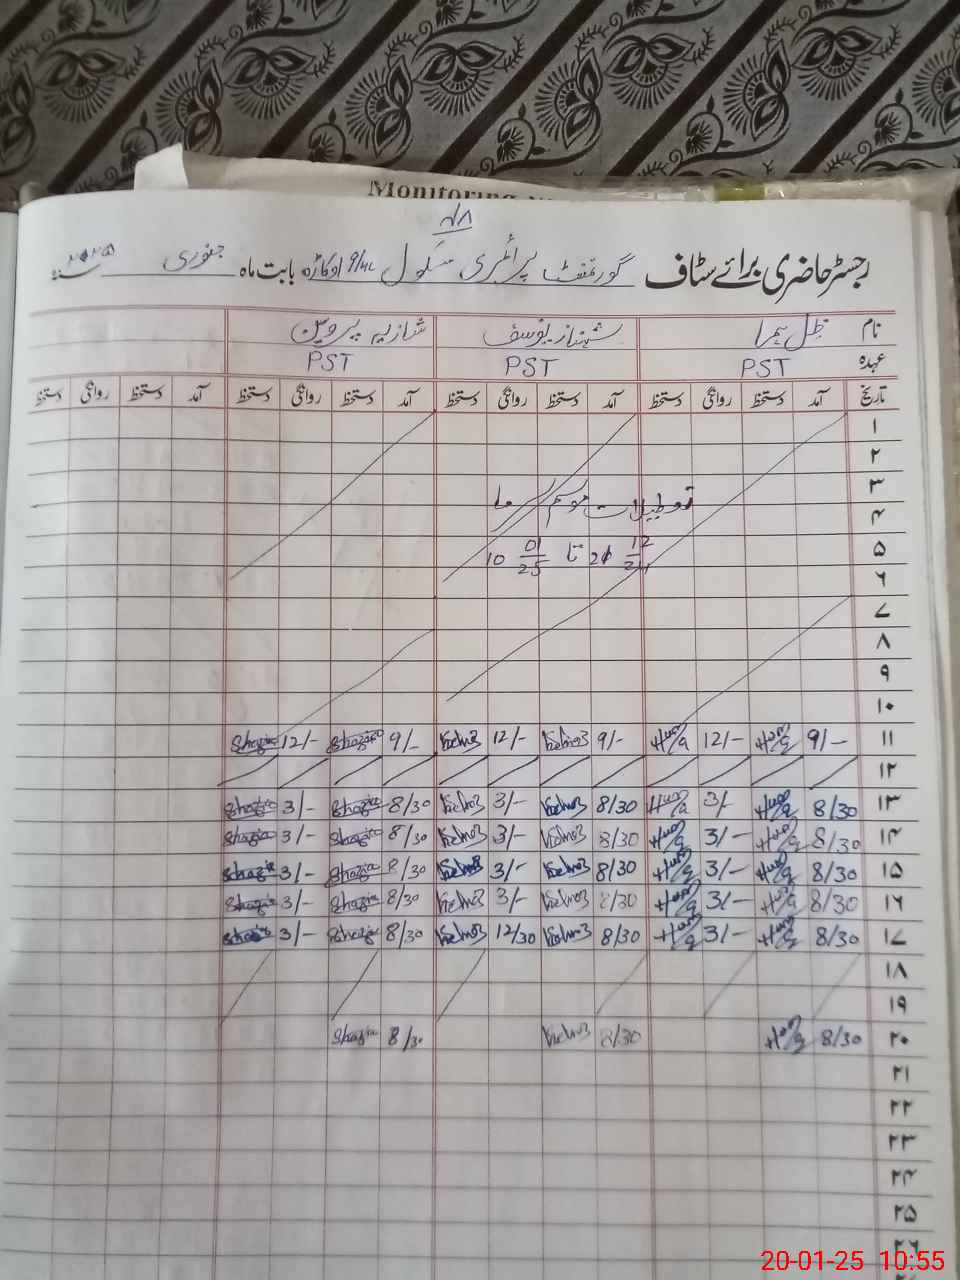 Monitoring
رجسٹر حاضری برائے سٹاف گورنمنٹ پرائمری سکول اوکاڑہ بابت ماہ جنوری ۲۰۲۵
نام ظل ہما شہناز یوسف شازیہ پروین
عہدہ PST PST PST
تاریخ آمد دستخط روانگی دستخط آمد دستخط روانگی دستخط آمد دستخط روانگی دستخط آمد دستخط روانگی دستخط
۱
۲
۳ تعطیلات موسم سرما
۴
۵ تا 10 01/25
۶
۷
۸
۹
۱۰
۱۱ 9/- Huma 12/- Huma 9/- 12/- 9/- Shazia 12/- Shazia
۱۲
۱۳ 8/30 Huma 3/- Huma 8/30 3/- 8/30 Shazia 3/- Shazia
۱۴ 8/30 Huma 3/- Huma 8/30 3/- 8/30 Shazia 3/- Shazia
۱۵ 8/30 Huma 3/- Huma 8/30 3/- 8/30 Shazia 3/- Shazia
۱۶ 8/30 Huma 3/- Huma 8/30 3/- 8/30 Shazia 3/- Shazia
۱۷ 8/30 Huma 3/- Huma 8/30 12/30 8/30 Shazia 3/- Shazia
۱۸
۱۹
۲۰ 8/30 Huma 8/30 8/30 Shazia
۲۱
۲۲
۲۳
۲۴
۲۵
۲۶
20-01-25 10:55